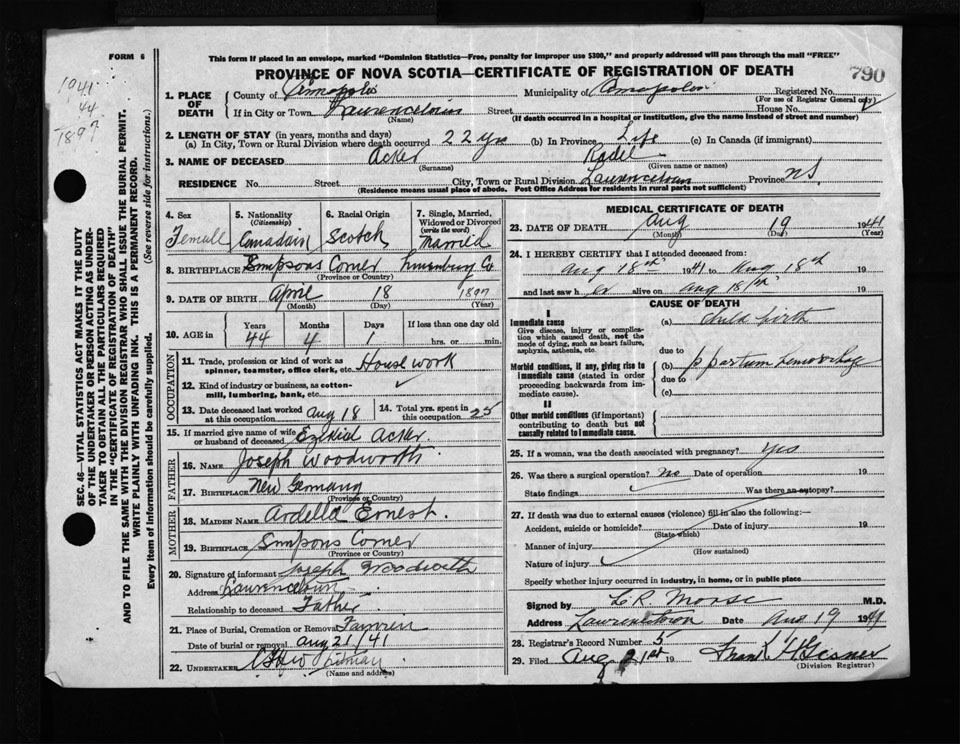 FORM 6
This form if placed in an envelope, marked "Dominion Statistics—Free, penalty for improper use $300," and properly addressed will pass through the mail "FREE"
PROVINCE OF NOVA SCOTIA—CERTIFICATE OF REGISTRATION OF DEATH
790
1941
44
1897
SEC. 46—VITAL STATISTICS ACT MAKES IT THE DUTY
OF THE UNDERTAKER OR PERSON ACTING AS UNDER-
TAKER TO OBTAIN ALL THE PARTICULARS REQUIRED
IN THE "CERTIFICATE OF REGISTRATION OF DEATH"
AND TO FILE THE SAME WITH THE DIVISION REGISTRAR WHO SHALL ISSUE THE BURIAL PERMIT.
WRITE PLAINLY WITH UNFADING INK. THIS IS A PERMANENT RECORD.
Every item of information should be carefully supplied. (See reverse side for instructions.)
1. PLACE OF DEATH County of Annapolis Municipality of Annapolis Registered No.
(For use of Registrar General only)
If in City or Town Lawrencetown Street House No.
(Name) (If death occurred in a hospital or institution, give the name instead of street and number)
2. LENGTH OF STAY (in years, months and days)
(a) In City, Town or Rural Division where death occurred 22 yrs (b) In Province Life (c) In Canada (if immigrant)
3. NAME OF DECEASED Acker Radel
(Surname) (Given name or names)
RESIDENCE No. Street City, Town or Rural Division Lawrencetown Province NS
(Residence means usual place of abode. Post Office Address for residents in rural parts not sufficient)
4. Sex Female
5. Nationality (Citizenship) Canadain
6. Racial Origin Scotch
7. Single, Married, Widowed or Divorced (write the word) Married
8. BIRTHPLACE Simpsons Corner Lunenburg Co
9. DATE OF BIRTH April 18 1897
(Month) (Day) (Year)
10. AGE in Years Months Days If less than one day old
44 4 1 hrs. or min.
OCCUPATION
11. Trade, profession or kind of work as
spinner, teamster, office clerk, etc. House work
12. Kind of industry or business, as cotton-
mill, lumbering, bank, etc.
13. Date deceased last worked at this occupation Aug 18
14. Total yrs. spent in this occupation 25
15. If married give name of wife or husband of deceased Ezekial Acker.
FATHER
16. NAME Joseph Woodworth
17. BIRTHPLACE New Germany
(Province or Country)
MOTHER
18. MAIDEN NAME Ardella Ernest.
19. BIRTHPLACE Simpsons Corner
(Province or Country)
20. Signature of informant Joseph Woodworth
Address Lawrencetown
Relationship to deceased Father
21. Place of Burial, Cremation or Removal
Date of burial or removal Aug 21/41
22. UNDERTAKER
(Name and address)
MEDICAL CERTIFICATE OF DEATH
23. DATE OF DEATH Aug 19 1941
(Month) (Day) (Year)
24. I HEREBY CERTIFY that I attended deceased from:
Aug 18th 1941 to Aug 18th 19
and last saw h er alive on Aug 18th 19
CAUSE OF DEATH
I
Immediate cause
Give disease, injury or complica-
tion which caused death, not the
mode of dying, such as heart failure,
asphyxia, asthenia, etc.
(a) Child birth
due to
Morbid conditions, if any, giving rise to
immediate cause (stated in order
proceeding backwards from im-
mediate cause).
(b) p partum hemorrhage
due to
(c)
II
Other morbid conditions (if important)
contributing to death but not
causally related to immediate cause.
25. If a woman, was the death associated with pregnancy? Yes
26. Was there a surgical operation? No Date of operation 19
State findings Was there an autopsy?
27. If death was due to external causes (violence) fill in also the following:—
Accident, suicide or homicide? Date of injury 19
(State which)
Manner of injury
(How sustained)
Nature of injury
Specify whether injury occurred in industry, in home, or in public place
Signed by L R Morse M.D.
Address Lawrencetown Date Aug 19 1941
28. Registrar's Record Number 5
29. Filed Aug 21st 19 Frank H Gesner
(Division Registrar)